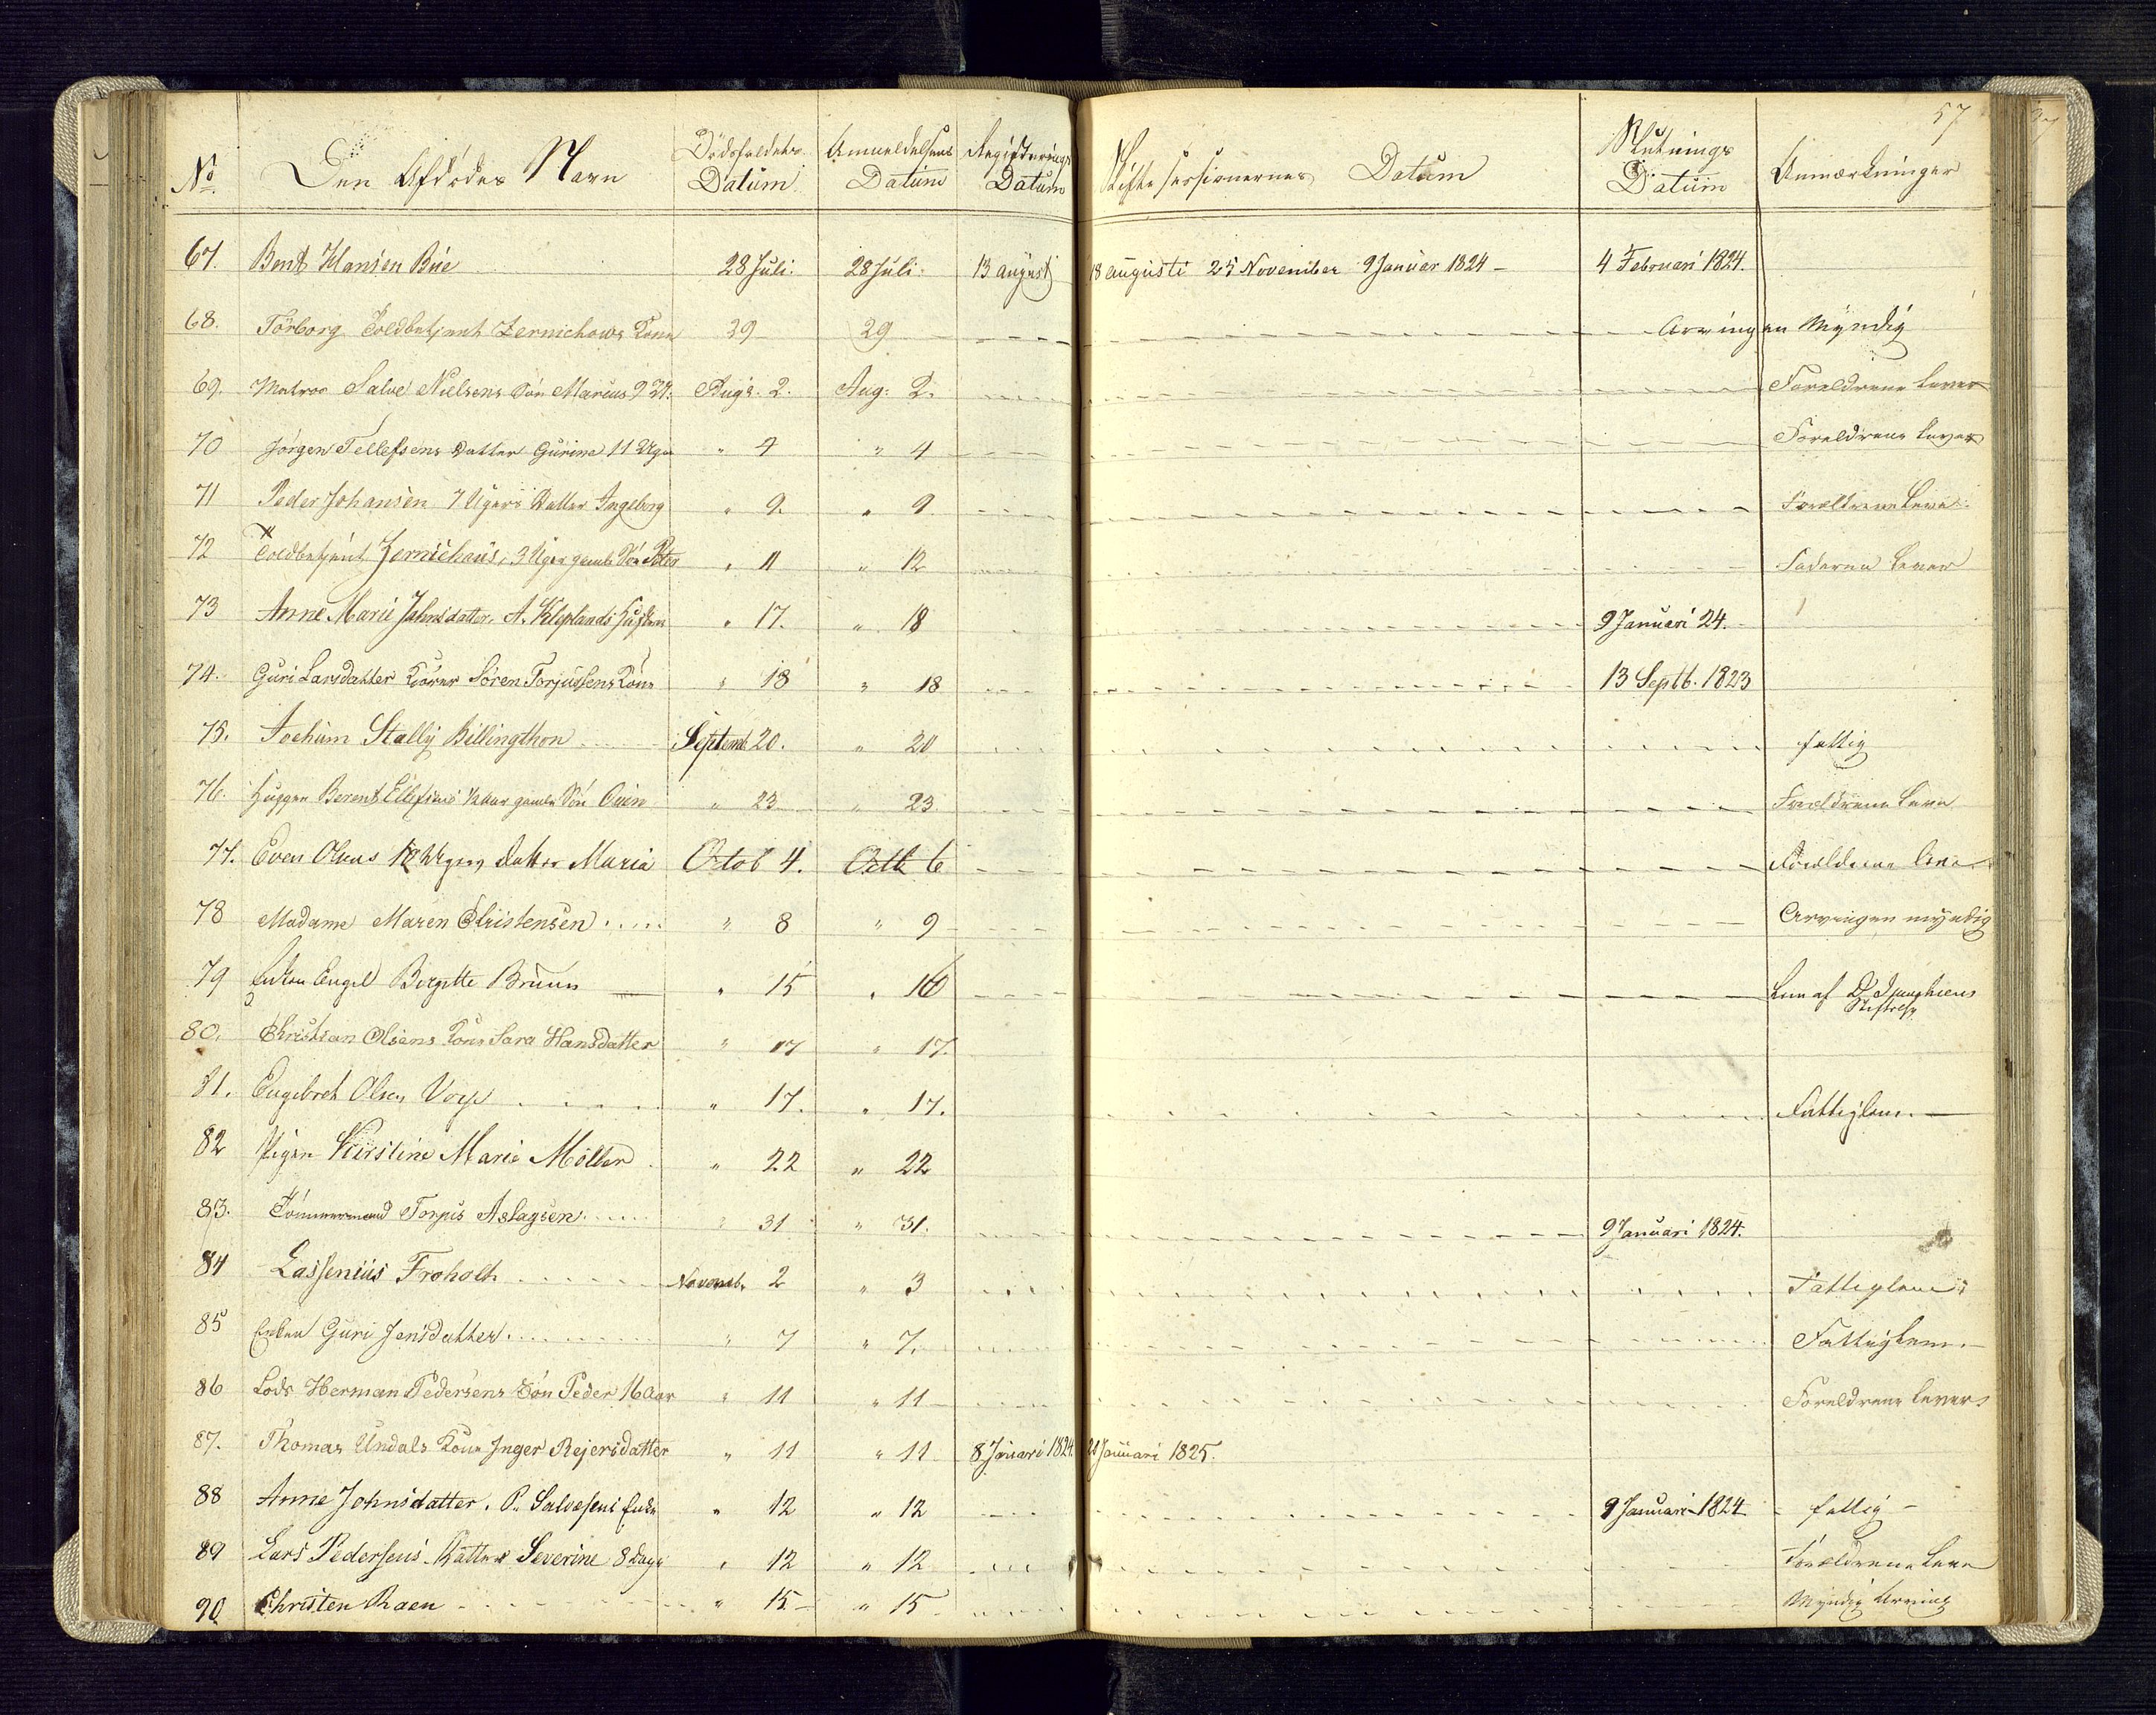 57
No Den Afdödes Navn Dödsfaldets Datum Anmeldelsens Datum Registerings Datum Skiftesessionernes Datum Slutnings Datum Anmærkninger
67. Bent Hansen Bie 28 Juli. 28 Juli. 13 august 18 augusti 25 November 9 Januar 1824 - 4 Februari 1824.
68. Törborg Toldbetjent Zernichows Kone 29 29 Arvingen Myndig
69. Matros Salve Nielsens Sön Marius Aug. 2. Aug. 2. Foreldrene lever
70 Jörgen Tellefsens Datter Gurine 11 Uger " 4 " 4 Foreldrene lever
71 Peder Johansen 7 Ugers Datter Ingeborg " 9. " 9. Forældrene leve
72 Toldbetjent Zernichaus, 3 Uger gamle Sön Peter " 11 " 12 Faderen lever
73 Anne Marie Jahnsdatter, A. Kleplands " 17. " 18 9 Januari 24.
74. Guri Larsdatter Sören Torjussens Kone " 18 " 18 13 Septb. 1823
75. Jochum Stally Billingthon Septemb. 20. " 20 fattig
76. Berent Ellefsens 1/2 Aar gamle Sön " 23 " 23. Forældrene leve
77. Even Olsens 12 Uger, datter Maria Octob 4. Octb 6 Forældrene leve
78 Madame Maren Christensen " 8 " 9 Arvingen myndig
79 Enken Engel Birgitte Bruun " 15 " 16 Lem af Stiftelse
80. Christian Olsens Kone Sara Hansdatter " 17 " 17.
81. Engebret Olsen Vorp " 17. " 17. Fattiglem. -
82 Pigen Kirstine Marie Möller " 22 " 22
83. Tömmermand Torjus Aslagsen " 31 " 31. 9 Januari 1824.
84 Lassenius Froholt Novemb. 2 " 3 Fattiglem
85 Enken Guri Jensdatter " 7 " 7. Fattiglem. -
86 Lods Herman Pedersens Sön Peder 16 Aar " 11 " 11 Foreldrene lever
87. Thomas Undals Kone Inger Rejersdatter " 11 " 11 8 Januari 1824. Januari 1825.
88 Anne Johnsdatter. P. Salvesens Enke " 12 " 12 9 Januari 1824 fattig -
89 Lars Pedersens Datter Severine 8 Dage " 12 " 12 Forældrene leve
90 Christen Raen " 15. " 15 Myndig Arving